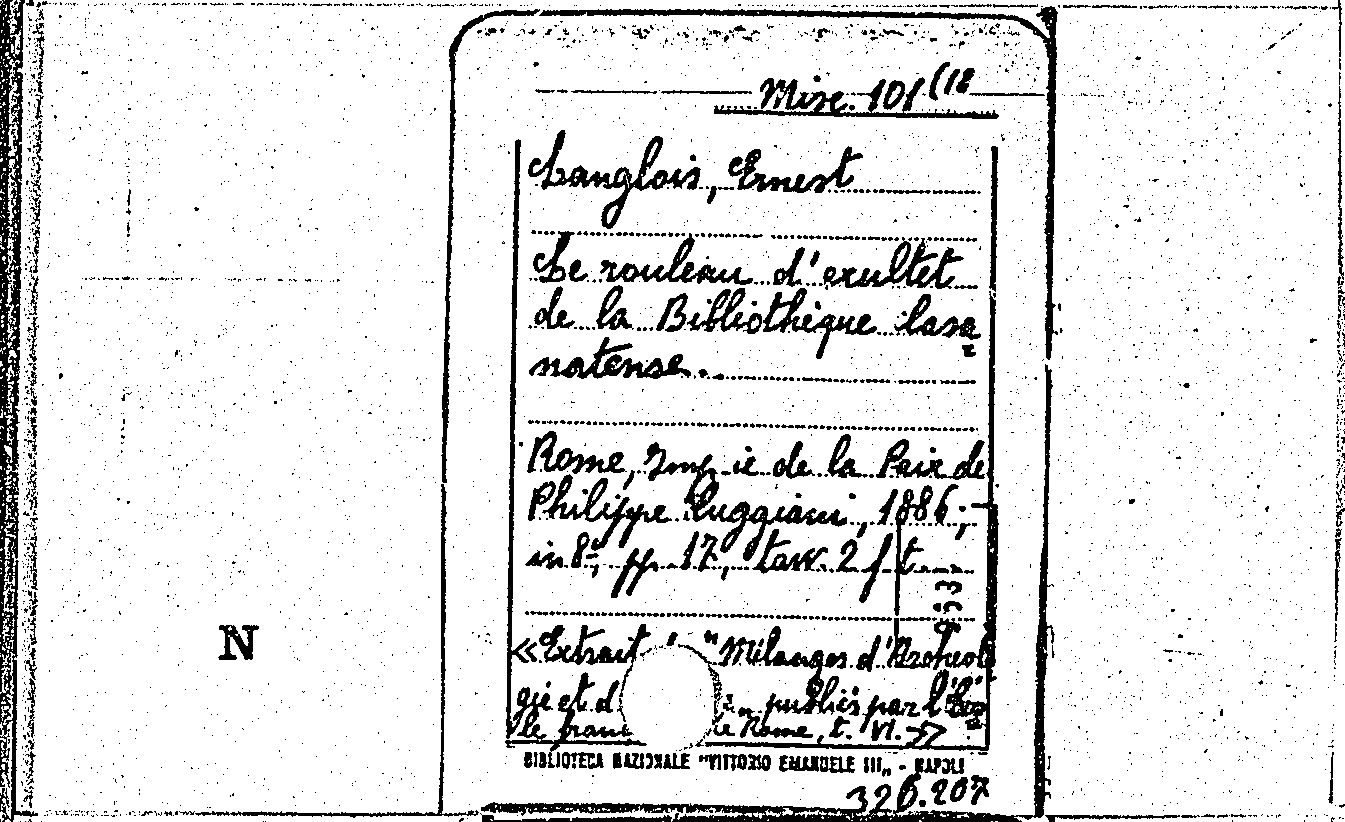 Misc. 101 (18
Langlois, Ernest
Le rouleau d'exultet
de la Bibliothèque Casa
natense.
Rome, Imp.ie de la Paix de
Philippe Cuggiani, 1886;
in 8º, pp. 17, tav. 2 f. t.
«Extrait "Mélanges d'Archéolo
gie et d publiés par l'Éco
le fran de Rome, t. VI.»
BIBLIOTECA NAZIONALE "VITTORIO EMANUELE III„ - NAPOLI
326.207
N